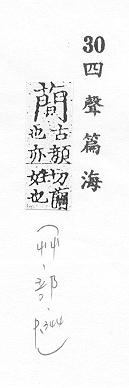 30 四聲篇海
蕑
古顏切蘭
也亦姓也
(艸部 P.344)